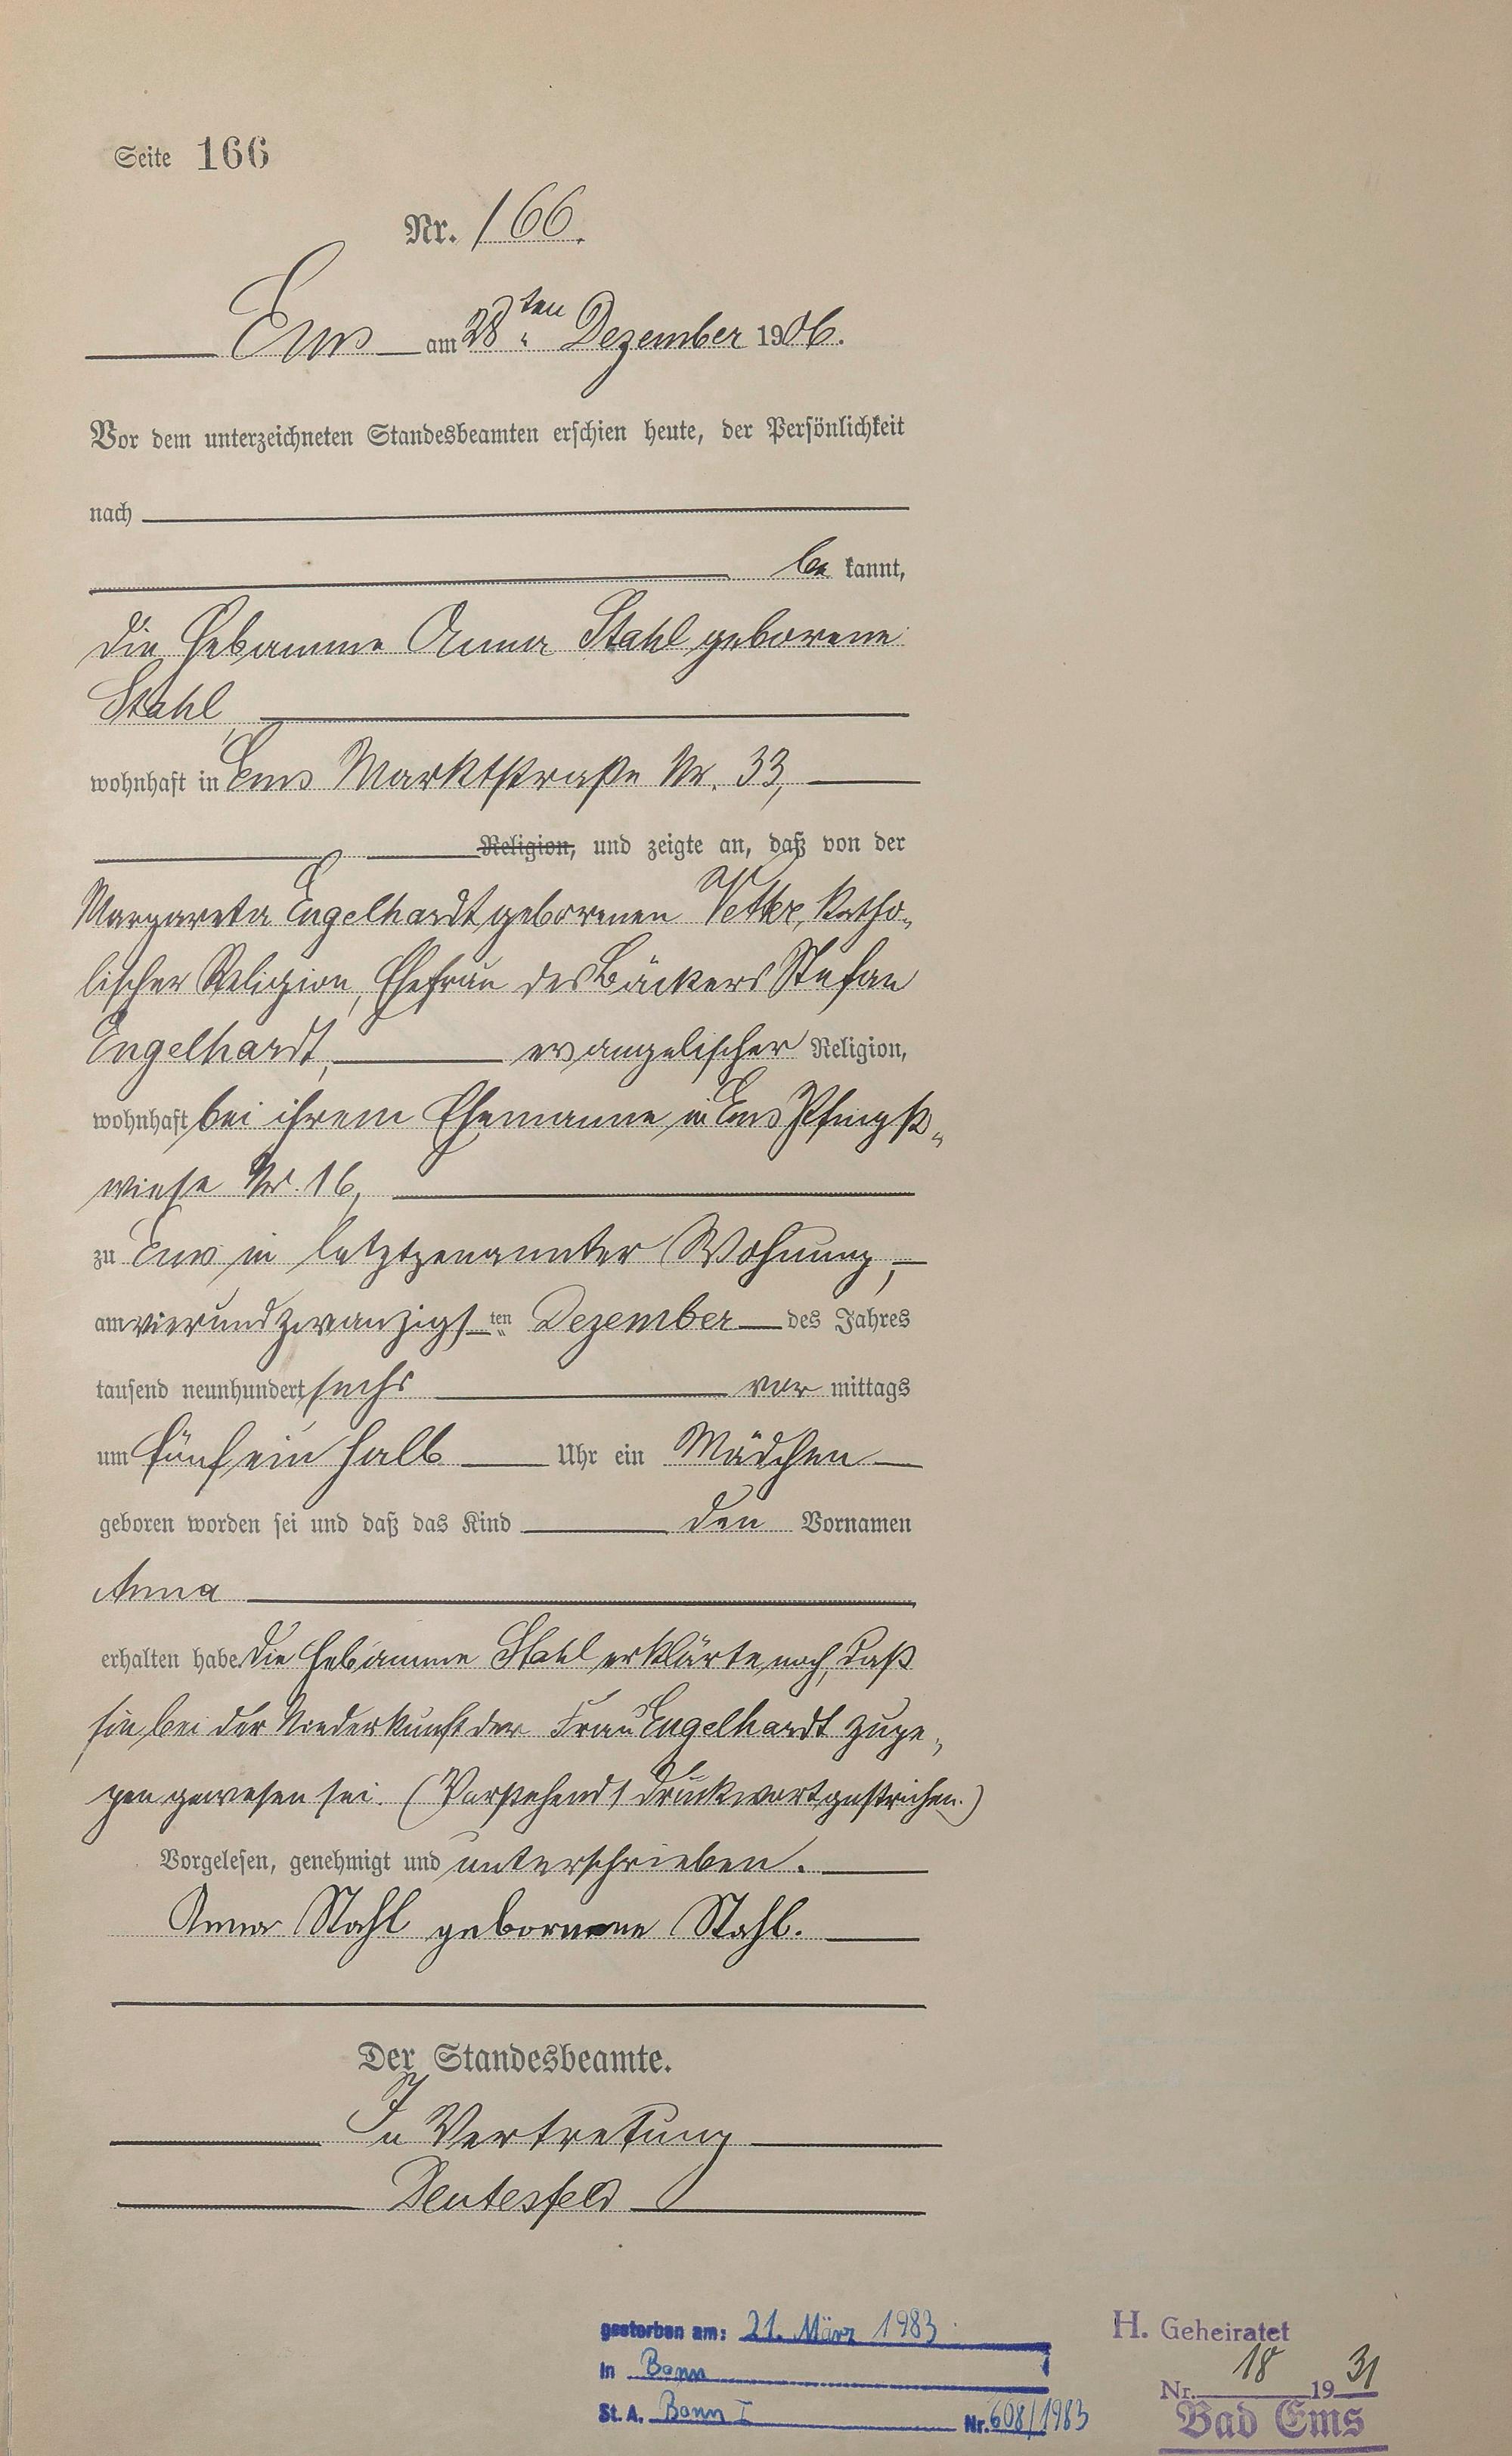 Seite 166
Nr. 166.
Ems am 28ten Dezember 1906.
Vor dem unterzeichneten Standesbeamten erschien heute, der Persönlichkeit
nach
be kannt,
die Hebamme Anna Stahl geborene
Stahl,
wohnhaft in Ems Marktstraße Nr. 33,
Religion, und zeigte an, daß von der
Margareta Engelhardt geborenen katho-
lischer Religion, Ehefrau des Bäckers Stefan
Engelhardt, evangelischer Religion,
wohnhaft bei ihrem Ehemanne in Ems Pfingst-
wiese Nr. 16,
zu Ems in letztgenannter Wohnung,
am vierundzwanzigsten Dezember des Jahres
tausend neunhundert sechs vor mittags
um fünf ein halb Uhr ein Mädchen
geboren worden sei und daß das Kind den Vornamen
Anna
erhalten habe. Die Hebamme Stahl erklärte noch, daß
sie bei der Niederkunft der Frau Engelhardt zuge-
gen gewesen sei. (Vorstehend 1 Druckwort gestrichen.)
Vorgelesen, genehmigt und unterschrieben.
Anna Stahl geborene Stahl.
Der Standesbeamte.
In Vertretung
gestorben am: 21. März 1983
in Bonn
St. A. Bonn I Nr. 608/1983
H. Geheiratet
Nr. 18 1931
Bad Ems